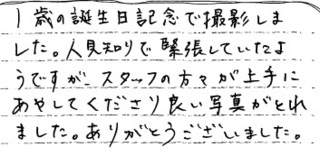 1歳の誕生日記念で撮影しま
した。人見知りで緊張していたよ
うですが、スタッフの方々が上手に
あやしてくださり良い写真がとれ
ました。ありがとうございました。